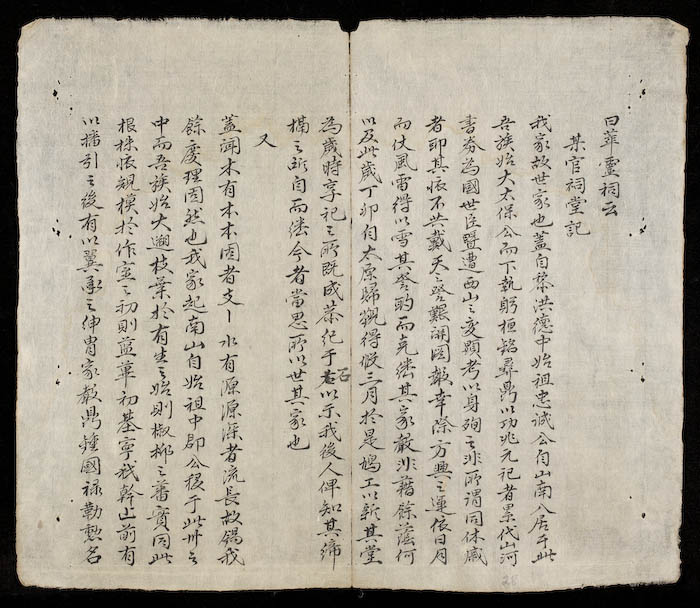 曰華靈祠云
某官祠堂記
我家故世家也蓋自黎洪德中始祖忠誠公自山南入居于此
吾族始大太保公而下執躬桓銘彝鼎以功兆元祀者累代山河
書券為國世臣暨遭西山之變顯考以身殉之非所謂同休戚
者耶其恢不共戴天之啓艱讲圖報幸際方興之運依日月
而仗風雷得以雪其讐酌而克纘其家嚴非藉餘蔭何
以及此歲丁卯自太原歸覲得假三月於是鳩工以新其堂
為歲時享祀之所既成恭紀于石以示我後人俾知其締
構之所自而繼今者當思所以世其家也
又
蓋聞木有本本固者支〻水有源源深者流長故錫我
餘慶理固然也我家起南山自始祖中郡公移于此卅之
中而吾族始大遡枝葉於有生之始則椒柳之蕃實同此
根株恢規模於作室之初則藍蓽初基寧我幹止前有
以播引之後有以翼承之紳冑家教鼎鍾國祿勒勲名